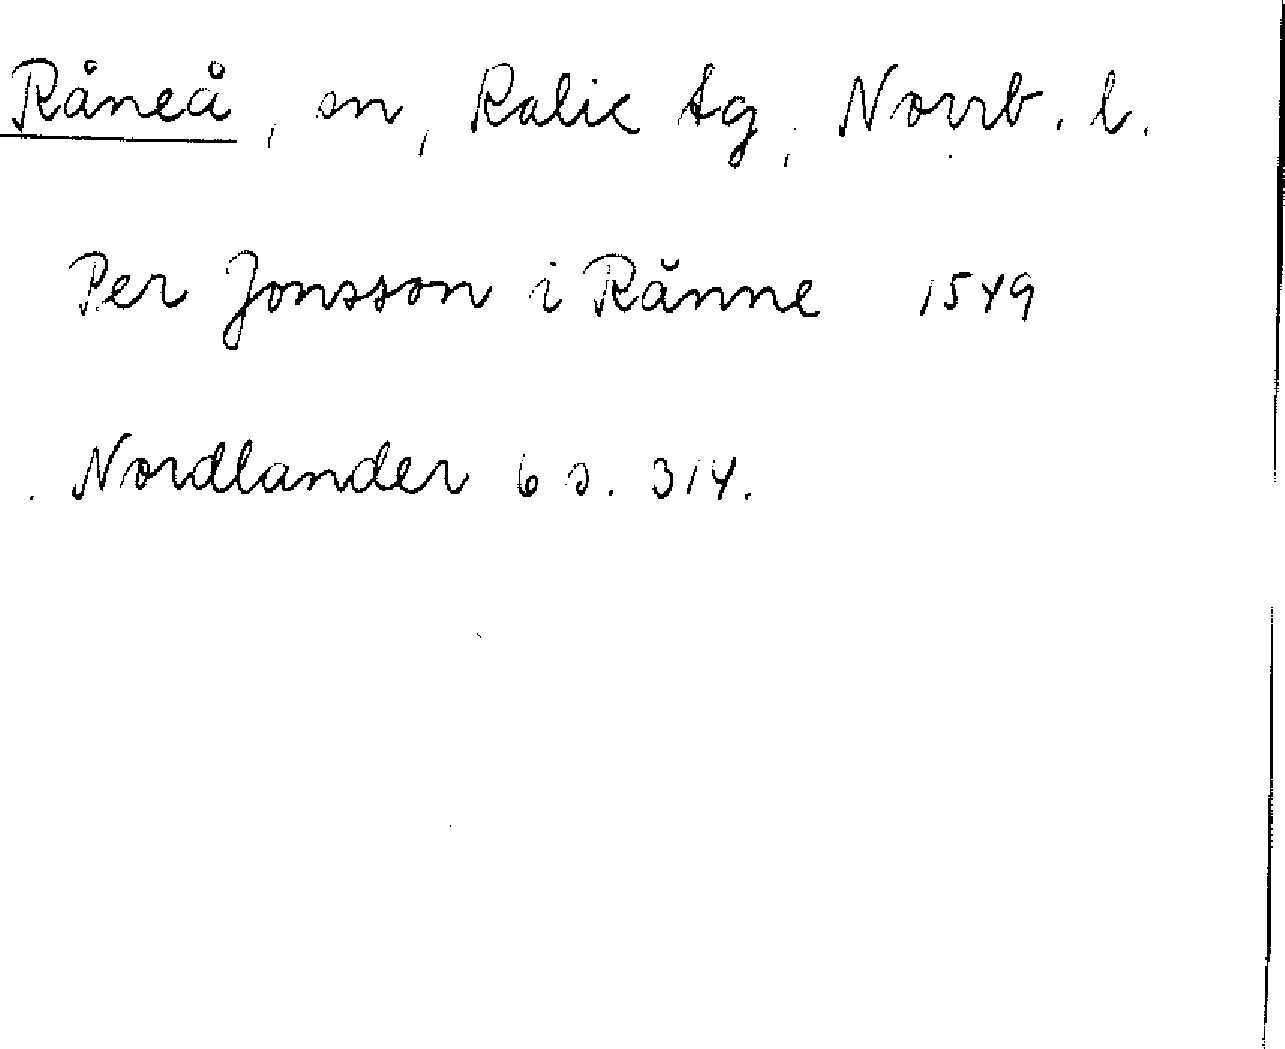 Råneå, sn, Kalix tg, Norrb. l.
Per Jonsson i Rånne 1549
Nordlander 6 s. 314.